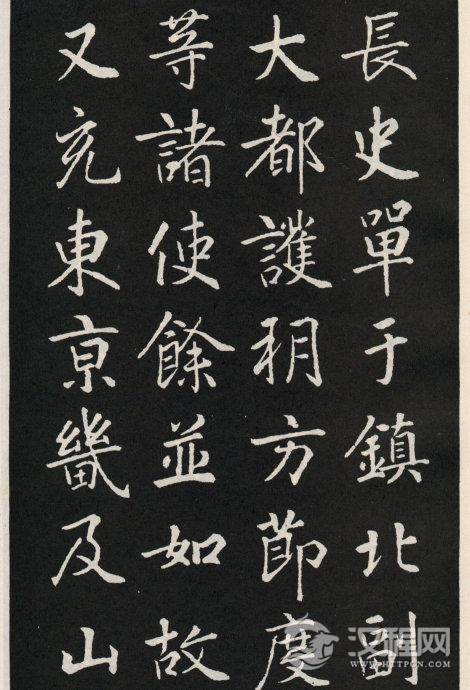 長史單于鎮北副
大都護朔方節度
等諸使餘並如故
又充東京畿及山
汉程网
WWW.HTTPCN.COM